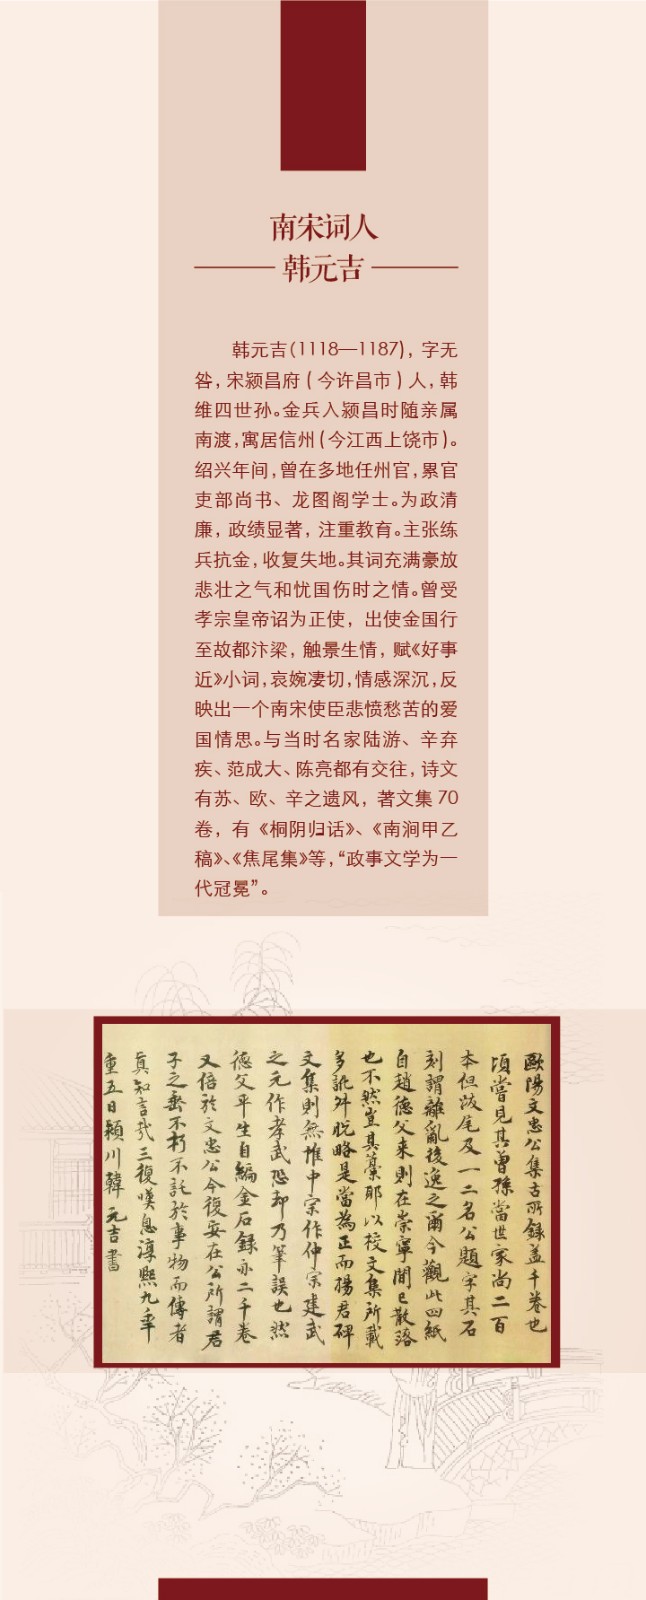 南宋词人
韩元吉
韩元吉(1118—1187)，字无
咎，宋颍昌府(今许昌市)人，韩
维四世孙。金兵入颍昌时随亲属
南渡，寓居信州(今江西上饶市)。
绍兴年间，曾在多地任州官，累官
吏部尚书、龙图阁学士。为政清
廉，政绩显著，注重教育。主张练
兵抗金，收复失地。其词充满豪放
悲壮之气和忧国伤时之情。曾受
孝宗皇帝诏为正使，出使金国行
至故都汴梁，触景生情，赋《好事
近》小词，哀婉凄切，情感深沉，反
映出一个南宋使臣悲愤愁苦的爱
国情思。与当时名家陆游、辛弃
疾、范成大、陈亮都有交往，诗文
有苏、欧、辛之遗风，著文集70
卷，有《桐阴归话》、《南涧甲乙
稿》、《焦尾集》等，“政事文学为一
代冠冕”。
歐陽文忠公集古所錄蓋千卷也
頃嘗見其曾孫當世家尚二百
本但跋尾及一二名公題字其石
刻謂離亂後逸之爾今觀此四紙
自趙德父来則在崇寧間已散落
也不然豈其藁耶以校文集所載
多訛舛脱略是當為正而楊君碑
文集則無惟中宗作仲宗建武
之元作孝武恐却乃筆誤也然
德父平生自編金石録亦二千卷
又倍於文忠公今復安在公所謂君
子之垂不朽不託於事物而傳者
真知言哉三復嘆息淳熙九年
重五日潁川韓元吉書